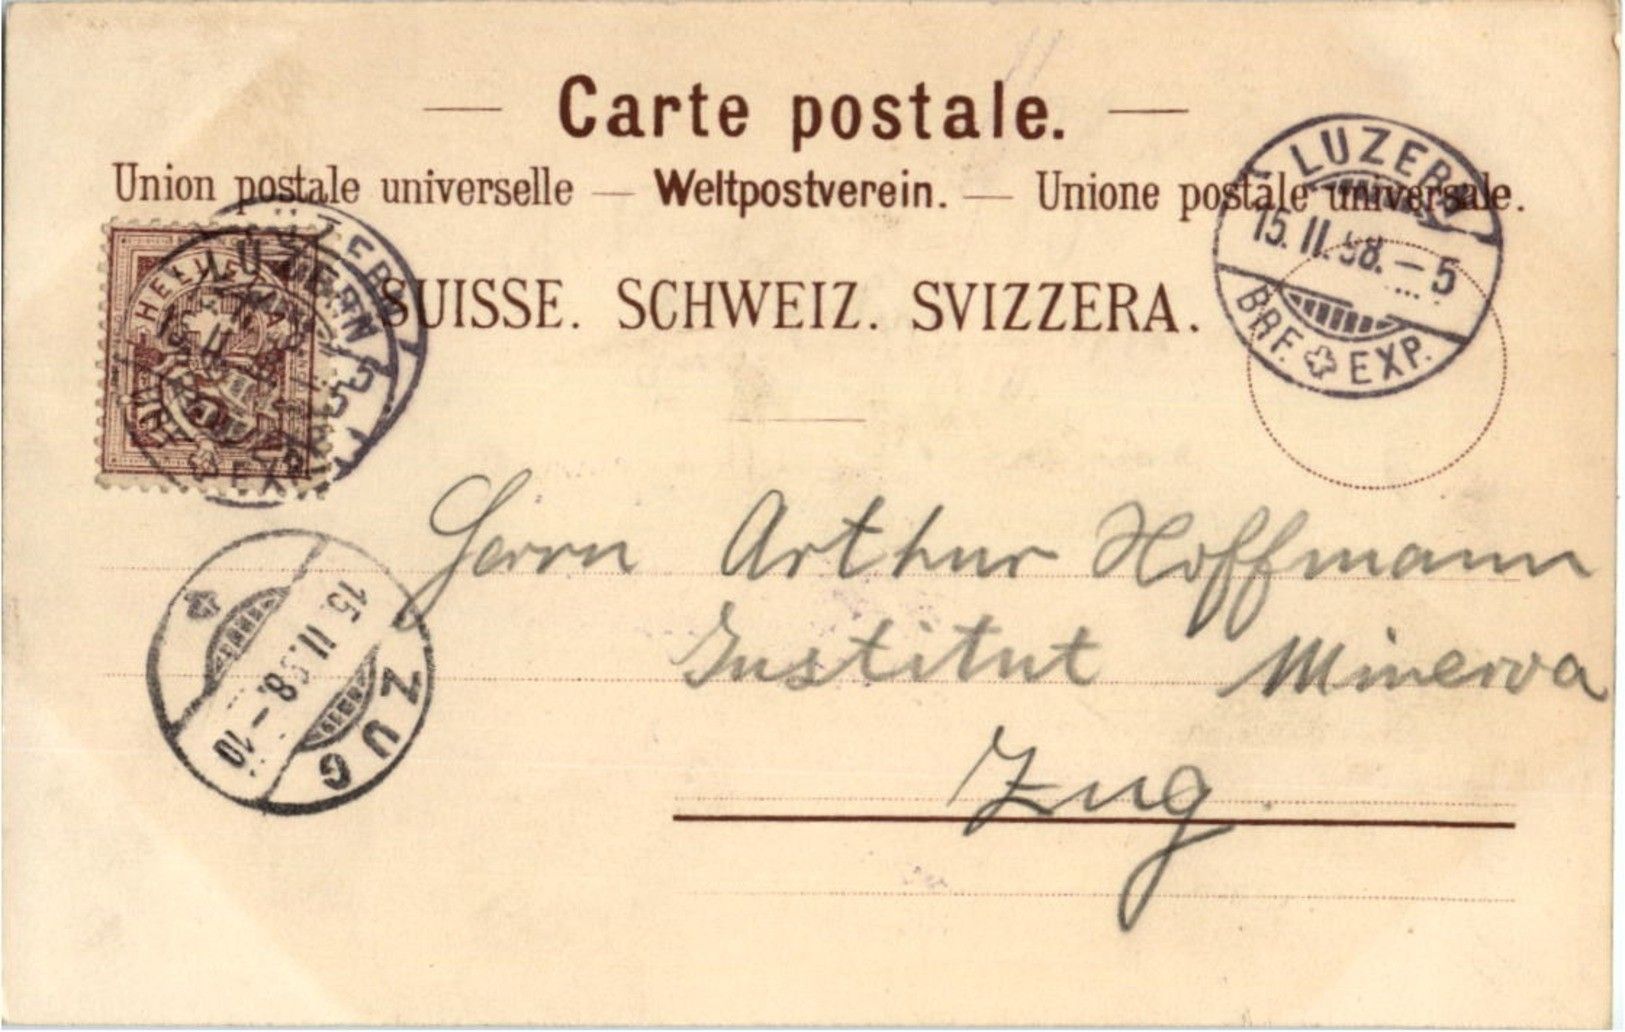 Carte postale.
Union postale universelle — Weltpostverein. — Unione postale universale.
SUISSE. SCHWEIZ. SVIZZERA.
LUZERN
15. II. 98. – 5
BRF. EXP.
HELVETIA
LUZERN
BRF. EXP.
15. II. 98. – 10
ZUG
Herrn Arthur Hoffmann
Institut Minerva
Zug.